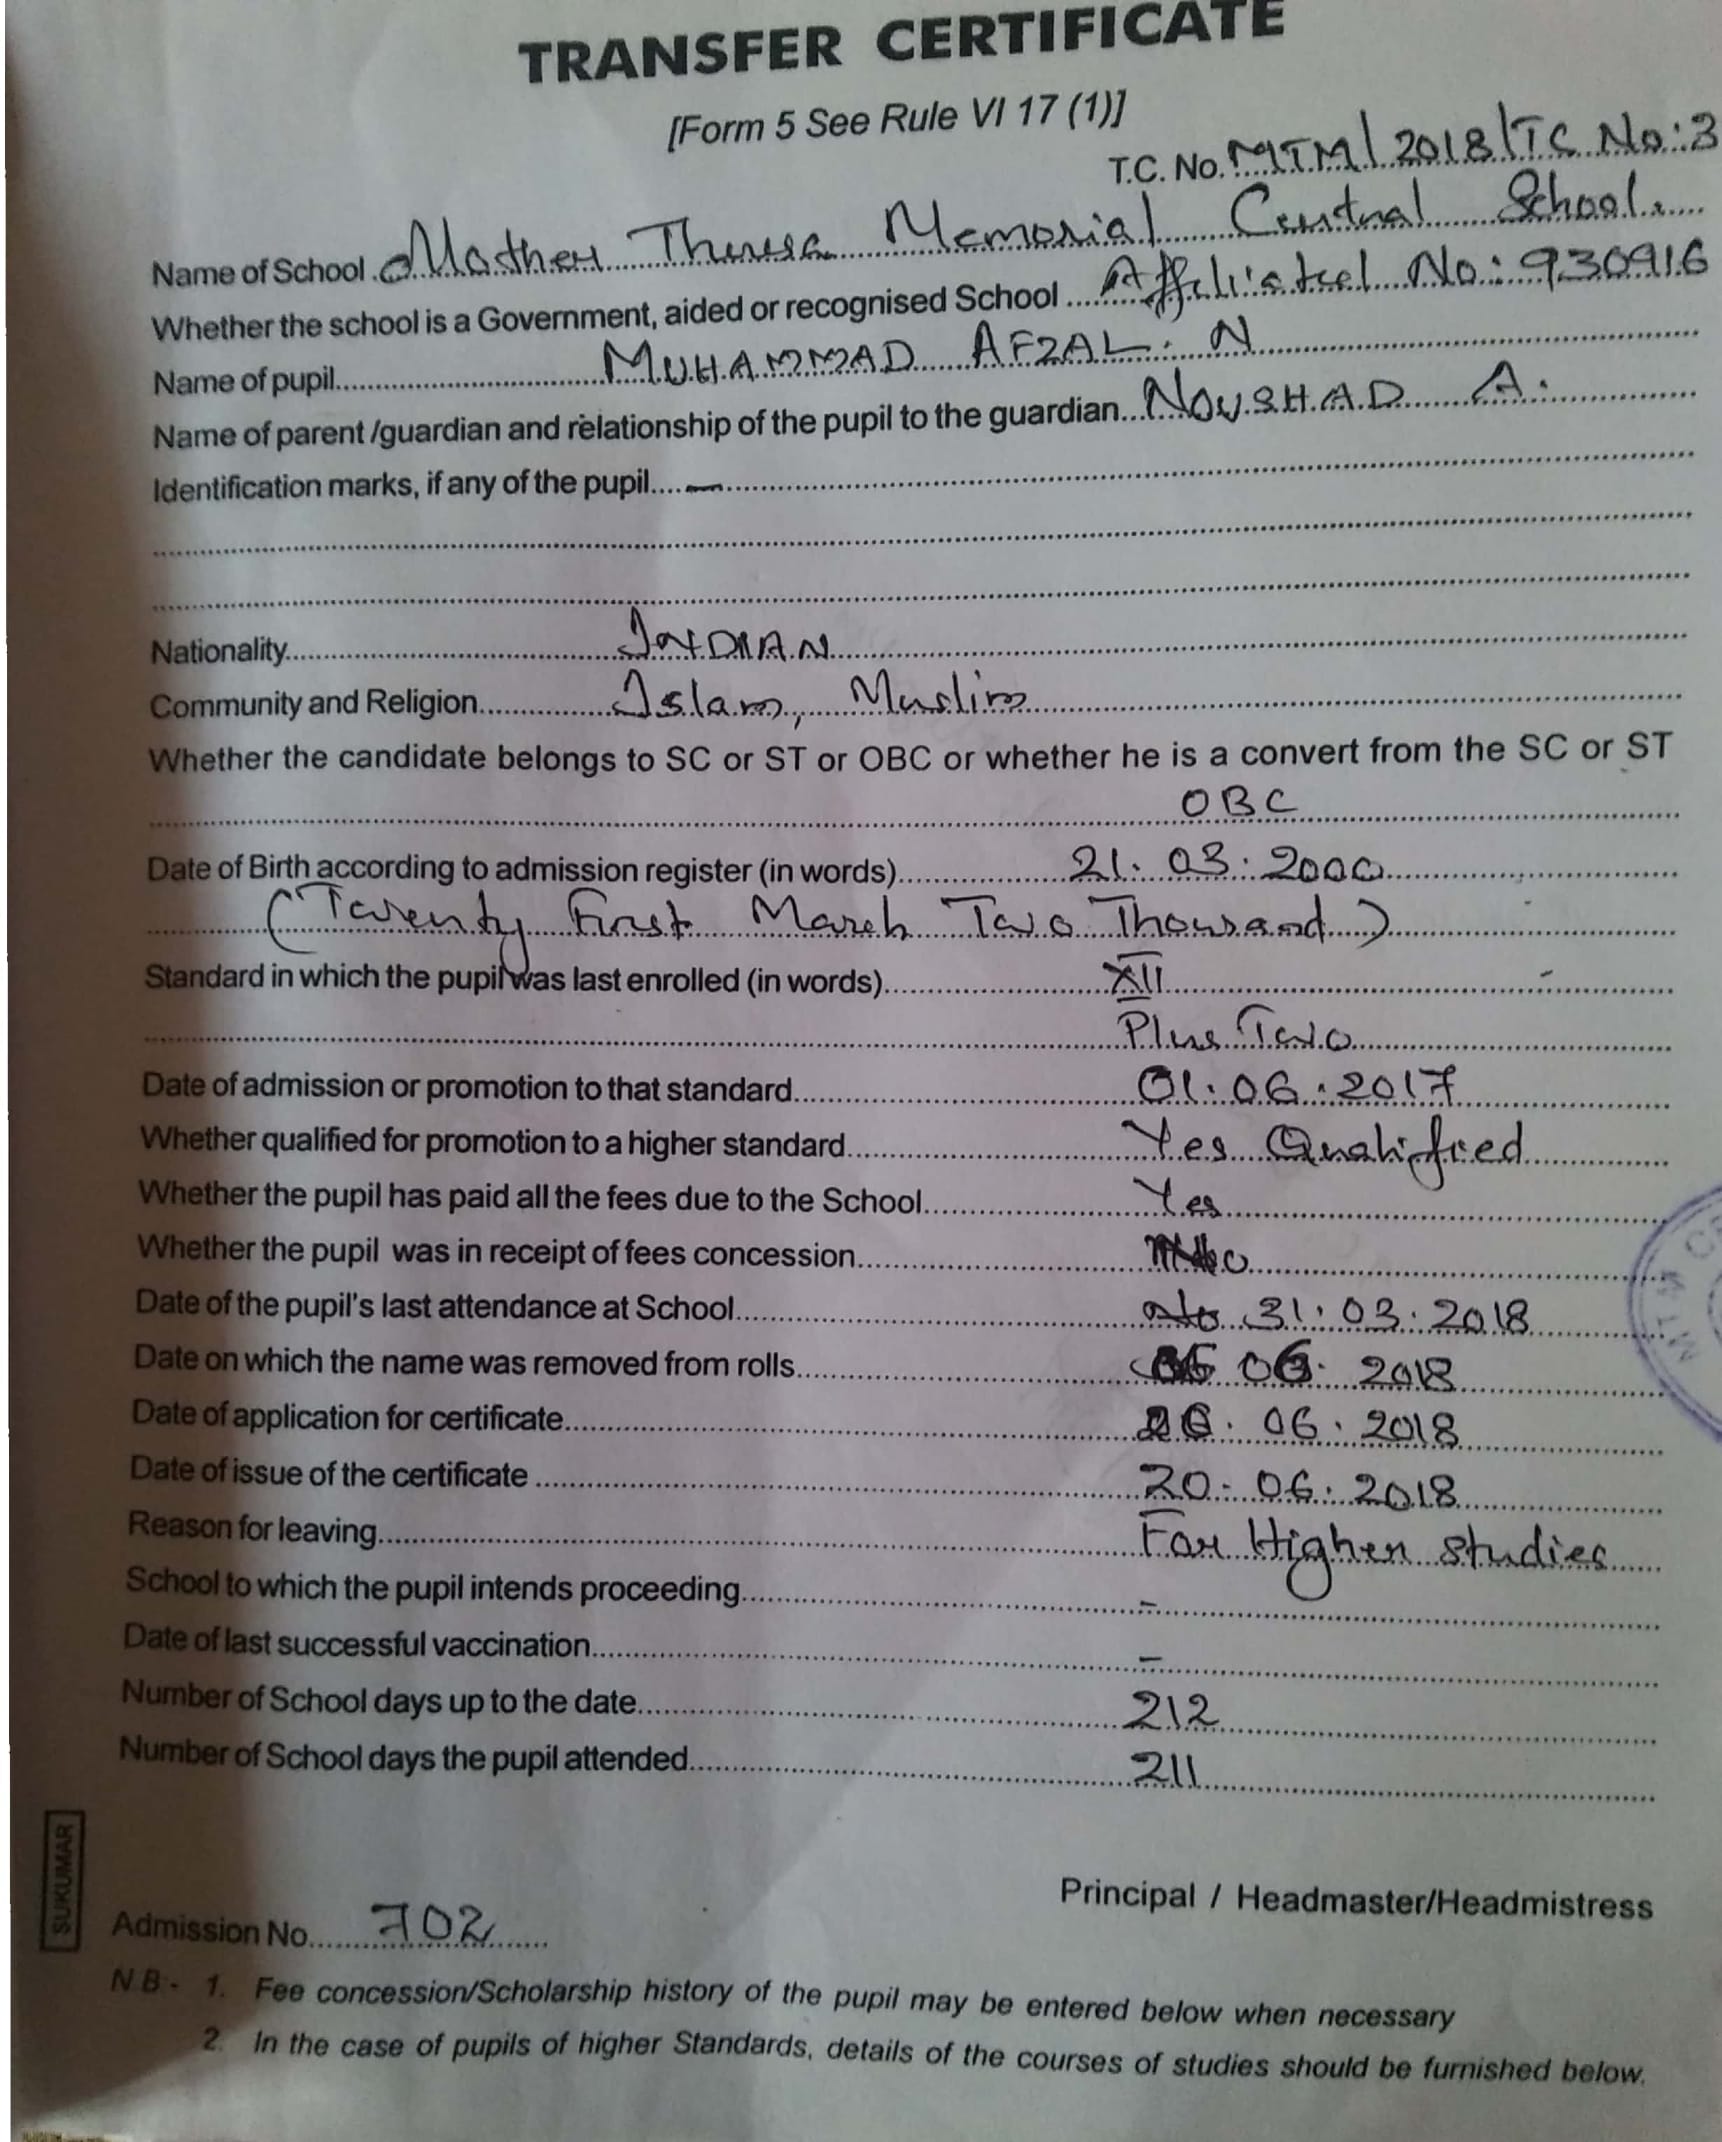 TRANSFER CERTIFICATE
[Form 5 See Rule VI 17 (1)]
T.C. No. MTM/2018/TC No:3
Name of School Mother Theresa Memorial Central School
Whether the school is a Government, aided or recognised School Affiliated No: 930916
Name of pupil MUHAMMAD AFZAL. N
Name of parent /guardian and relationship of the pupil to the guardian NOUSHAD A.
Identification marks, if any of the pupil —
Nationality INDIAN
Community and Religion Islam, Muslim
Whether the candidate belongs to SC or ST or OBC or whether he is a convert from the SC or ST
OBC
Date of Birth according to admission register (in words) 21.03.2000
(Twenty First March Two Thousand)
Standard in which the pupil was last enrolled (in words) XII
Plus Two
Date of admission or promotion to that standard 01.06.2017
Whether qualified for promotion to a higher standard Yes Qualified
Whether the pupil has paid all the fees due to the School Yes
Whether the pupil was in receipt of fees concession No
Date of the pupil's last attendance at School 31.03.2018
Date on which the name was removed from rolls 2018
Date of application for certificate 06.2018
Date of issue of the certificate 20.06.2018
Reason for leaving For Higher studies
School to which the pupil intends proceeding –
Date of last successful vaccination –
Number of School days up to the date 212
Number of School days the pupil attended 211
Principal / Headmaster/Headmistress
SUKUMAR
Admission No 702
N.B - 1. Fee concession/Scholarship history of the pupil may be entered below when necessary
2. In the case of pupils of higher Standards, details of the courses of studies should be furnished below.